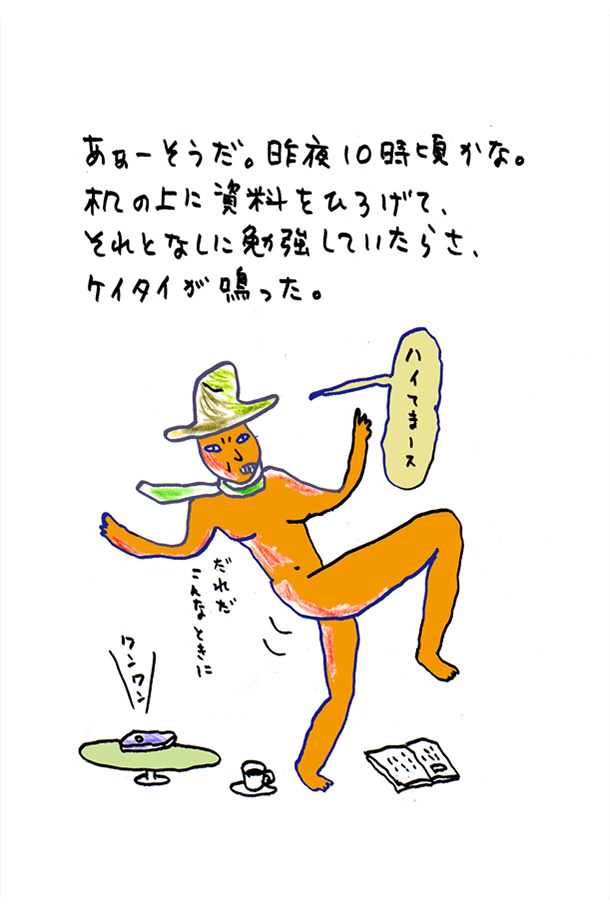 あぁーそうだ。昨夜10時頃かな。
机の上に資料をひろげて、
それとなしに勉強していたらさ、
ケイタイが鳴った。
ハイてまース
だれだ
こんなときに
ワンワン